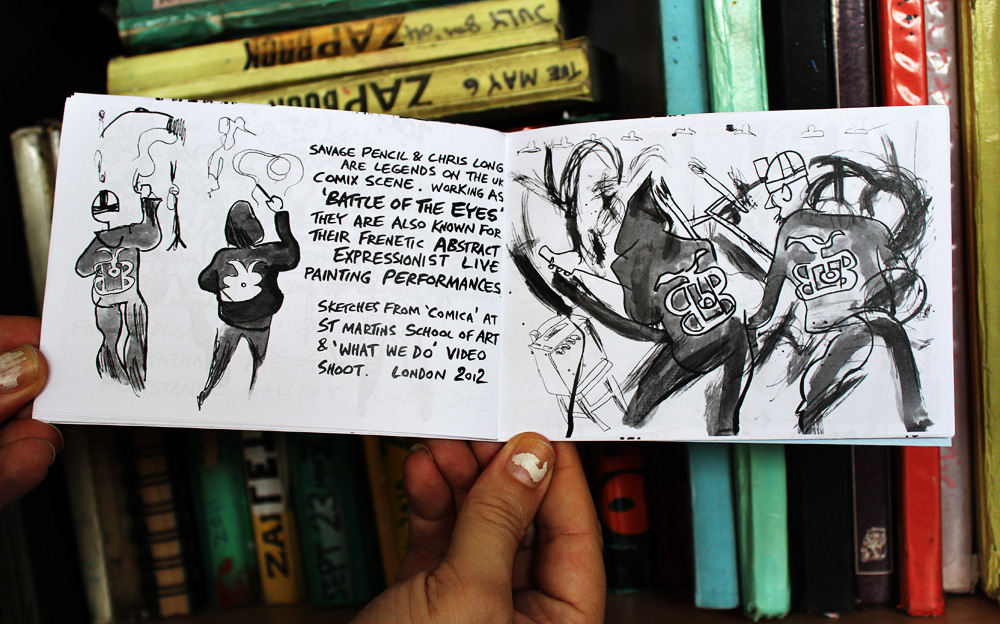 JULY 8
ZAPBOOK
THE MAY 6
ZAPBOOK
SAVAGE PENCIL & CHRIS LONG
ARE LEGENDS ON THE UK
COMIX SCENE. WORKING AS
'BATTLE OF THE EYES'
THEY ARE ALSO KNOWN FOR
THEIR FRENETIC ABSTRACT
EXPRESSIONIST LIVE
PAINTING PERFORMANCES.
SKETCHES FROM 'COMICA' AT
ST MARTINS SCHOOL OF ART
& 'WHAT WE DO' VIDEO
SHOOT. LONDON 2012
SEPT 23